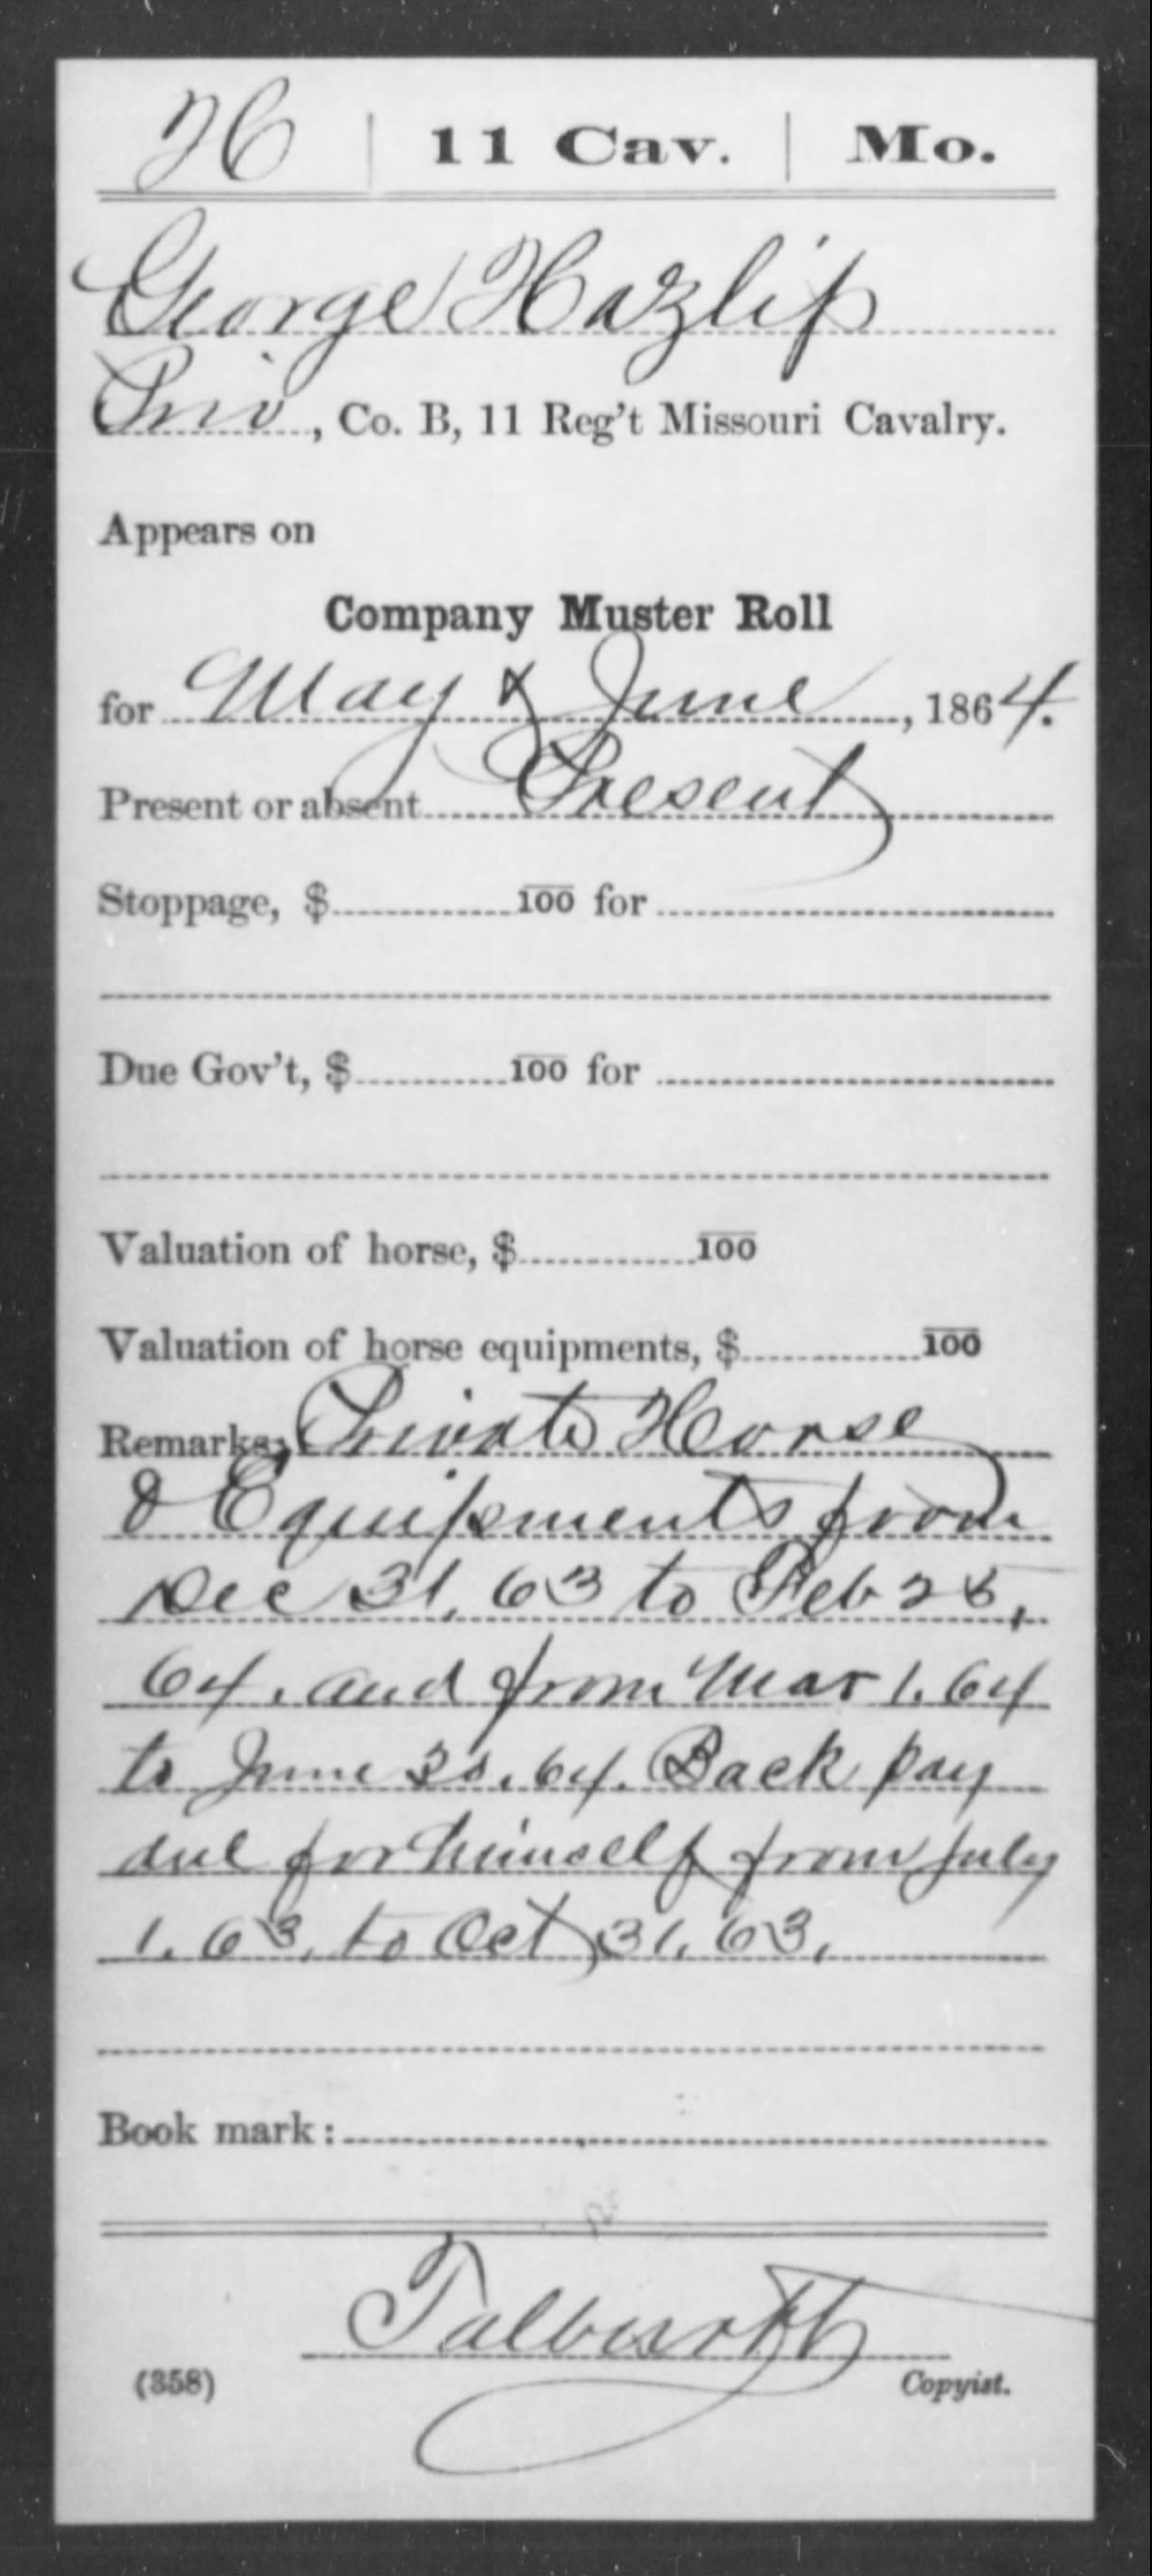 H | 11 Cav. | Mo.
George Hazlip
Priv., Co. B, 11 Reg't Missouri Cavalry.
Appears on
Company Muster Roll
for May & June, 1864.
Present or absent Present
Stoppage, $ 100 for
Due Gov't, $ 100 for
Valuation of horse, $ 100
Valuation of horse equipments, $ 100
Remarks: Private Horse
& Equipments from
Dec 31, 63 to Feb 28,
64. and from Mar 1. 64
to June 30. 64. Back pay
due for himself from July
1. 63, to Oct 31, 63,
Book mark:
(358)
Copyist.